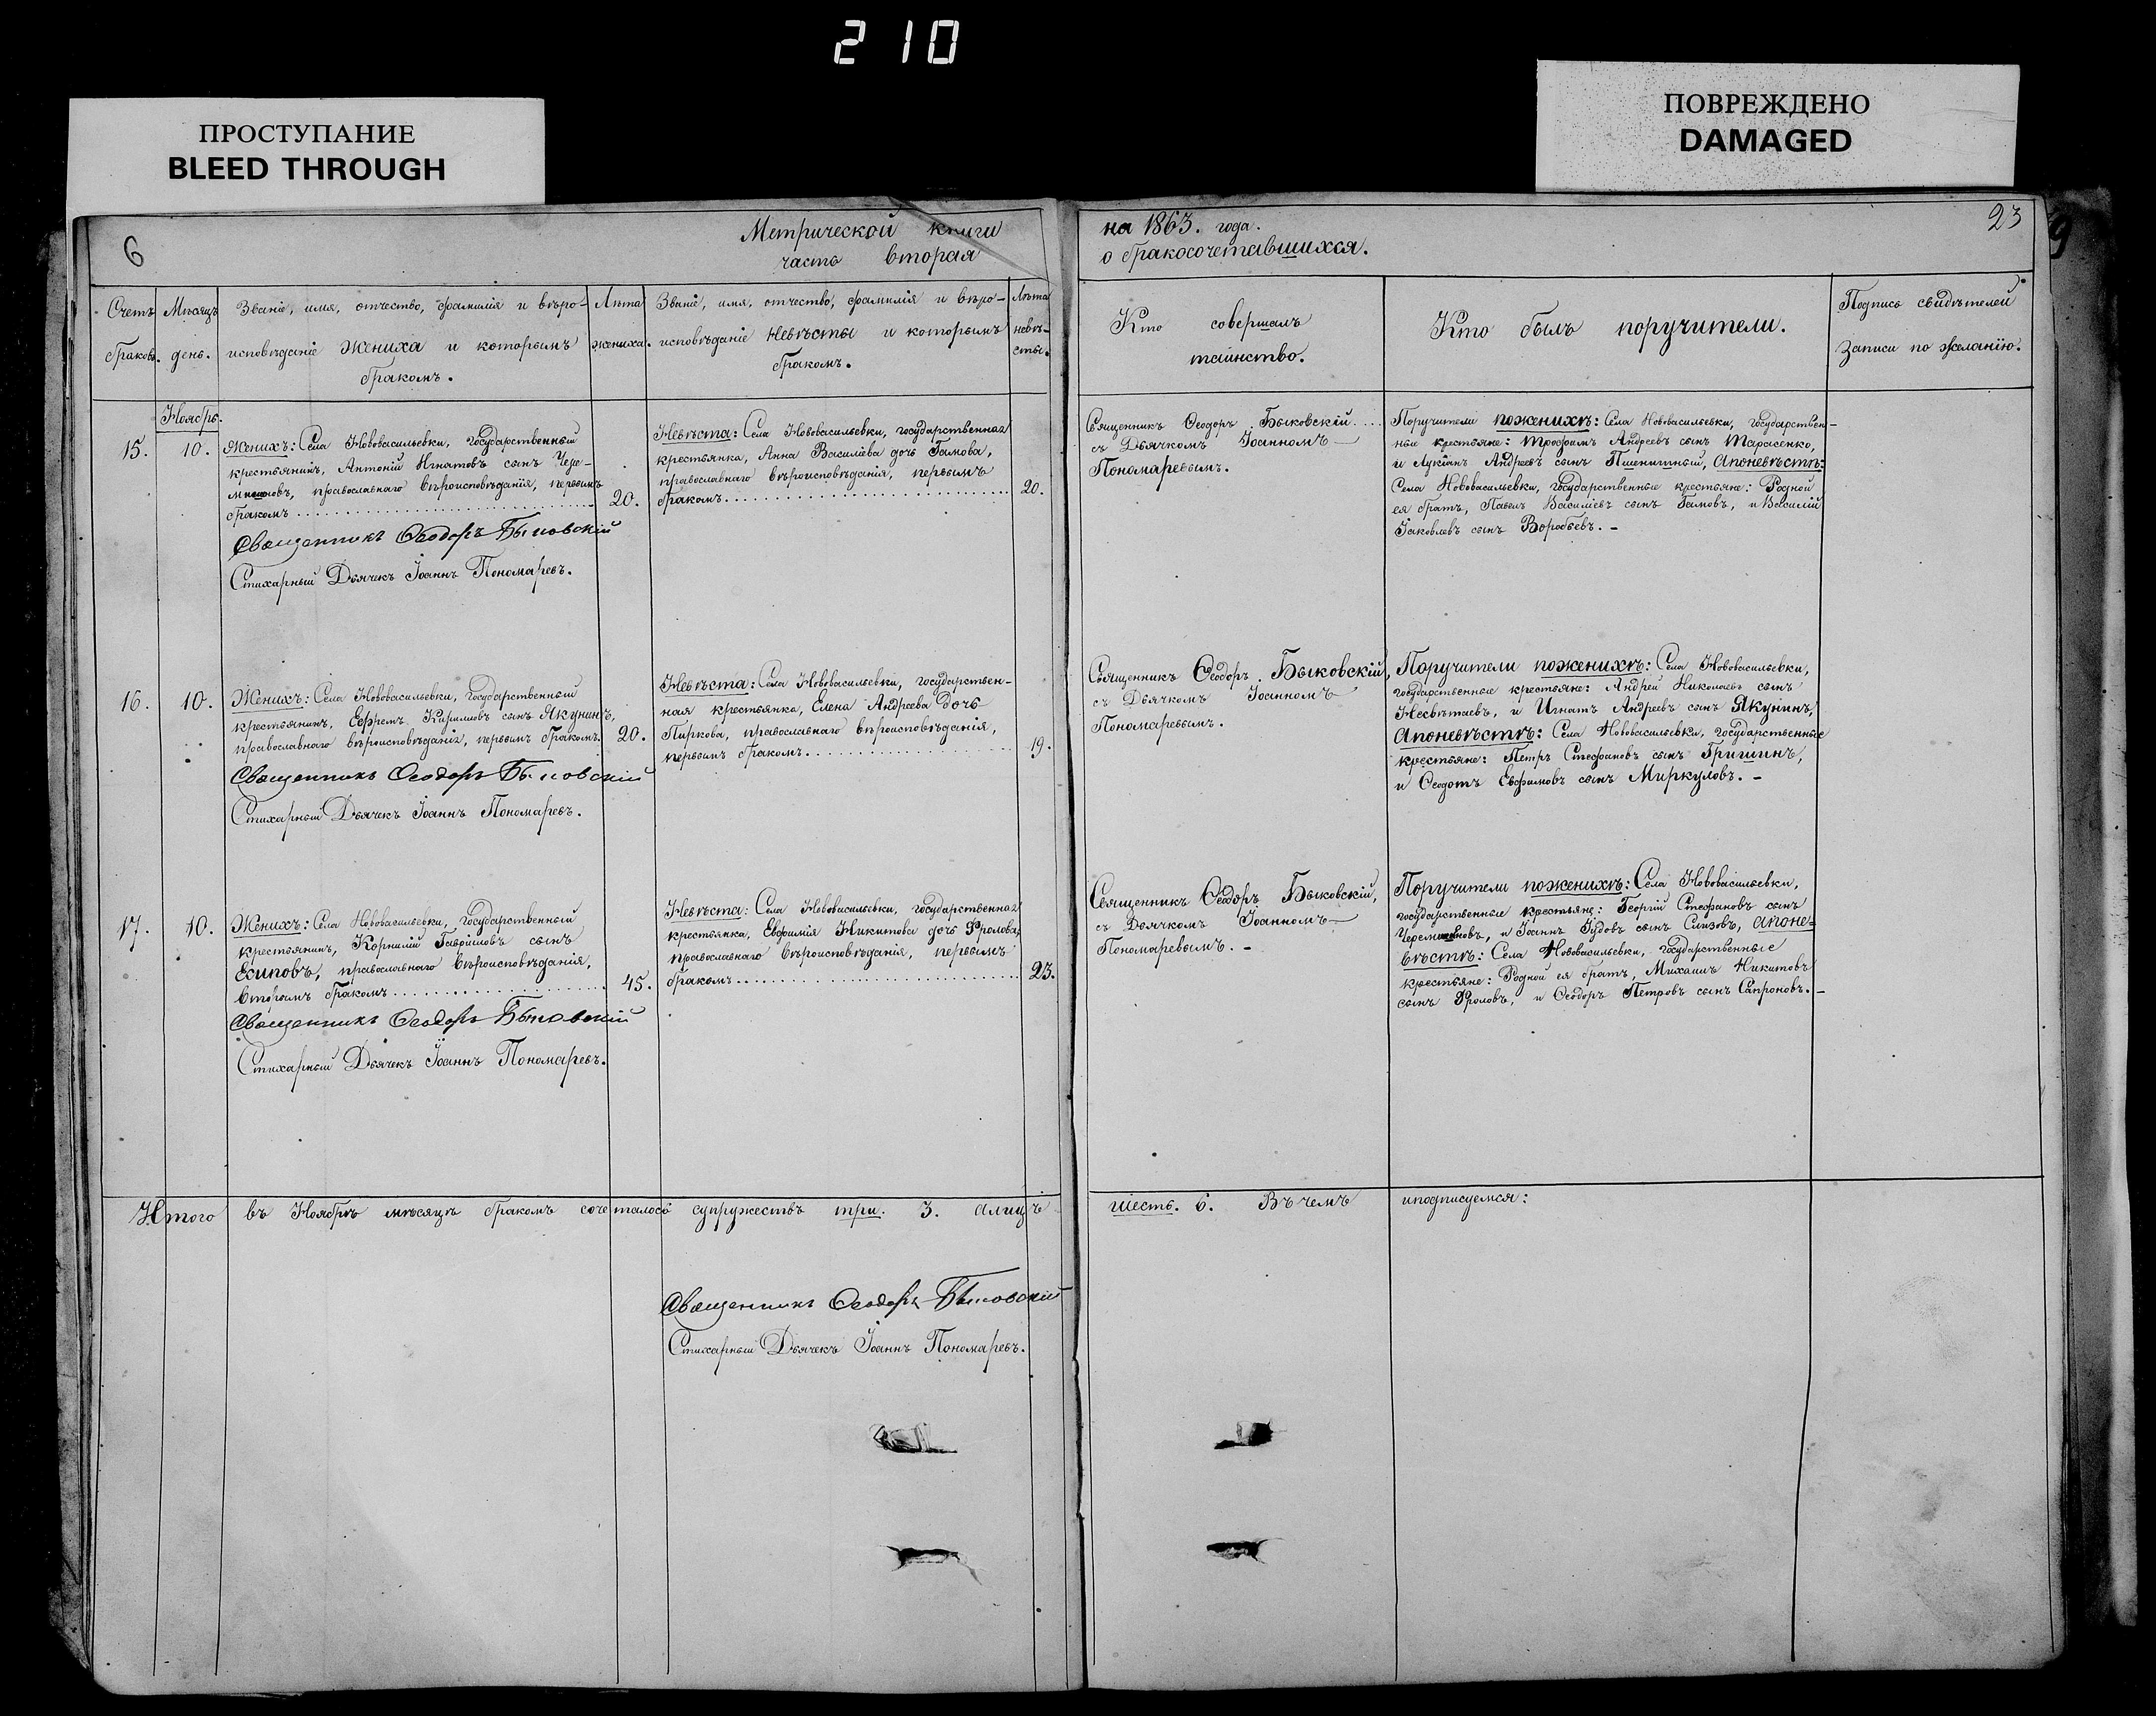 210
ПРОСТУПАНИЕ
BLEED THROUGH
ПОВРЕЖДЕНО
DAMAGED
6
Метрической книги
часть вторая
на 1863. года.
о бракосочетавшихся.
23
9
Счетъ
браковъ.
Мѣсяцъ
день.
Званіе, имя, отчество, фамилія и вѣро-
исповѣданіе жениха и которымъ
бракомъ.
Лѣта
жениха.
Званіе, имя, отчество, фамилія и вѣро-
исповѣданіе невѣсты и которымъ
бракомъ.
Лѣта
невѣ-
сты.
Кто совершалъ
таинство.
Кто былъ поручители.
Подпись свидѣтелей
Записи по желанію.
Ноябрь.
15.
10.
Женихъ: Села Нововасильевки, государственный
крестьянинъ, Антоній Игнатовъ сынъ Чере-
мисиновъ, православнаго вѣроисповѣданія, первымъ
бракомъ
20.
Священникъ Ѳеодоръ Быковскій
Стихарный Дьячекъ Іоаннъ Пономаревъ.
Невѣста: Села Нововасильевки, государственная
крестьянка, Анна Василіева дочь Гамова,
православнаго вѣроисповѣданія, первымъ
бракомъ
20.
Священникъ Ѳеодоръ Быковскій
съ Дьячкомъ Іоанномъ
Пономаревымъ.
Поручители поженихѣ: Села Нововасильевки, государствен-
ные крестьяне: Трофимъ Андреевъ сынъ Тарасенко,
и Лукіанъ Андреевъ сынъ Пшеничный, апоневѣстѣ:
Села Нововасильевки, государственные крестьяне: Родной
ея братъ, Павелъ Василіевъ сынъ Гамовъ, и Василій
Іаковлевъ сынъ Воробьевъ. -
16.
10.
Женихъ: Села Нововасильевки, государственный
крестьянинъ, Ефремъ Кириловъ сынъ Якунинъ,
православнаго вѣроисповѣданія, первымъ бракомъ.
20.
Священникъ Ѳеодоръ Быковскій
Стихарный Дьячекъ Іоаннъ Пономаревъ.
Невѣста: Села Нововасильевки, государствен-
ная крестьянка, Елена Андреева дочь
Пиркова, православнаго вѣроисповѣданія,
первымъ бракомъ
19.
Священникъ Ѳеодоръ Быковскій,
съ Дьячкомъ Іоанномъ
Пономаревымъ.
Поручители поженихѣ: Села Нововасильевки,
государственные крестьяне: Андрей Николаевъ сынъ
Несвѣтаевъ, и Игнатъ Андреевъ сынъ Якунинъ,
апоневѣстѣ: Села Нововасильевки, государственные
крестьяне: Петръ Стефановъ сынъ Гришинъ,
и Ѳеодотъ Евфимовъ сынъ Миркуловъ. -
17.
10.
Женихъ: Села Нововасильевки, государственный
крестьянинъ, Корнилій Гавріиловъ сынъ
Есиповъ, православнаго вѣроисповѣданія,
вторымъ бракомъ
45.
Священникъ Ѳеодоръ Быковскій
Стихарный Дьячекъ Іоаннъ Пономаревъ.
Невѣста: Села Нововасильевки, государственная
крестьянка, Евфимія Никитова дочь Фролова,
православнаго вѣроисповѣданія, первымъ
бракомъ
23.
Священникъ Ѳеодоръ Быковскій,
съ Дьячкомъ Іоанномъ
Пономаревымъ. -
Поручители поженихѣ: Села Нововасильевки,
государственные крестьяне: Георгій Стефановъ сынъ
Черемисиновъ, и Іоаннъ Іудовъ сынъ Сизовъ, апоне-
вѣстѣ: Села Нововасильевки, государственные
крестьяне: Родной ея братъ, Михаилъ Никитовъ
сынъ Фроловъ, и Ѳеодоръ Петровъ сынъ Сапроновъ. -
Итого въ Ноябрѣ мѣсяцѣ бракомъ сочеталось супружествъ три. 3. алицъ шесть. 6. Въ чемъ иподписуемся:
Священникъ Ѳеодоръ Быковскій
Стихарный Дьячекъ Іоаннъ Пономаревъ.